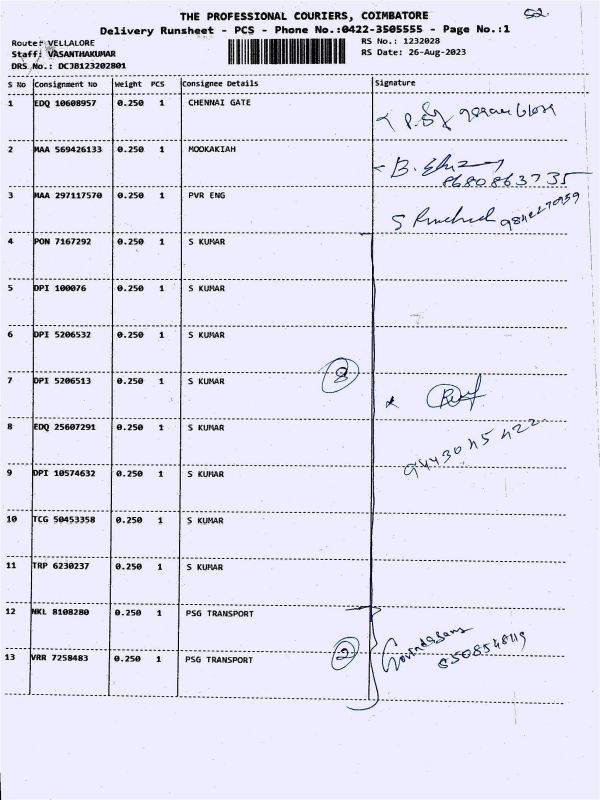 THE PROFESSIONAL COURIERS, COIMBATORE
52
Delivery Runsheet - PCS - Phone No.:0422-3505555 - Page No.:1
Route: VELLALORE
RS No.: 1232028
Staff: VASANTHAKUMAR
RS Date: 26-Aug-2023
DRS No.: DCJB123202801
S No Consignment No Weight PCS Consignee Details Signature
1 EDQ 10608957 0.250 1 CHENNAI GATE
2 MAA 569426133 0.250 1 MOOKAKIAH
8680863735
3 MAA 297117570 0.250 1 PVR ENG
4 PON 7167292 0.250 1 S KUMAR
5 DPI 100076 0.250 1 S KUMAR
6 DPI 5206532 0.250 1 S KUMAR
8
7 DPI 5206513 0.250 1 S KUMAR
8 EDQ 25607291 0.250 1 S KUMAR
9443045422
9 DPI 10574632 0.250 1 S KUMAR
10 TCG 50453358 0.250 1 S KUMAR
11 TRP 6230237 0.250 1 S KUMAR
12 NKL 8108280 0.250 1 PSG TRANSPORT
2
13 VRR 7258483 0.250 1 PSG TRANSPORT